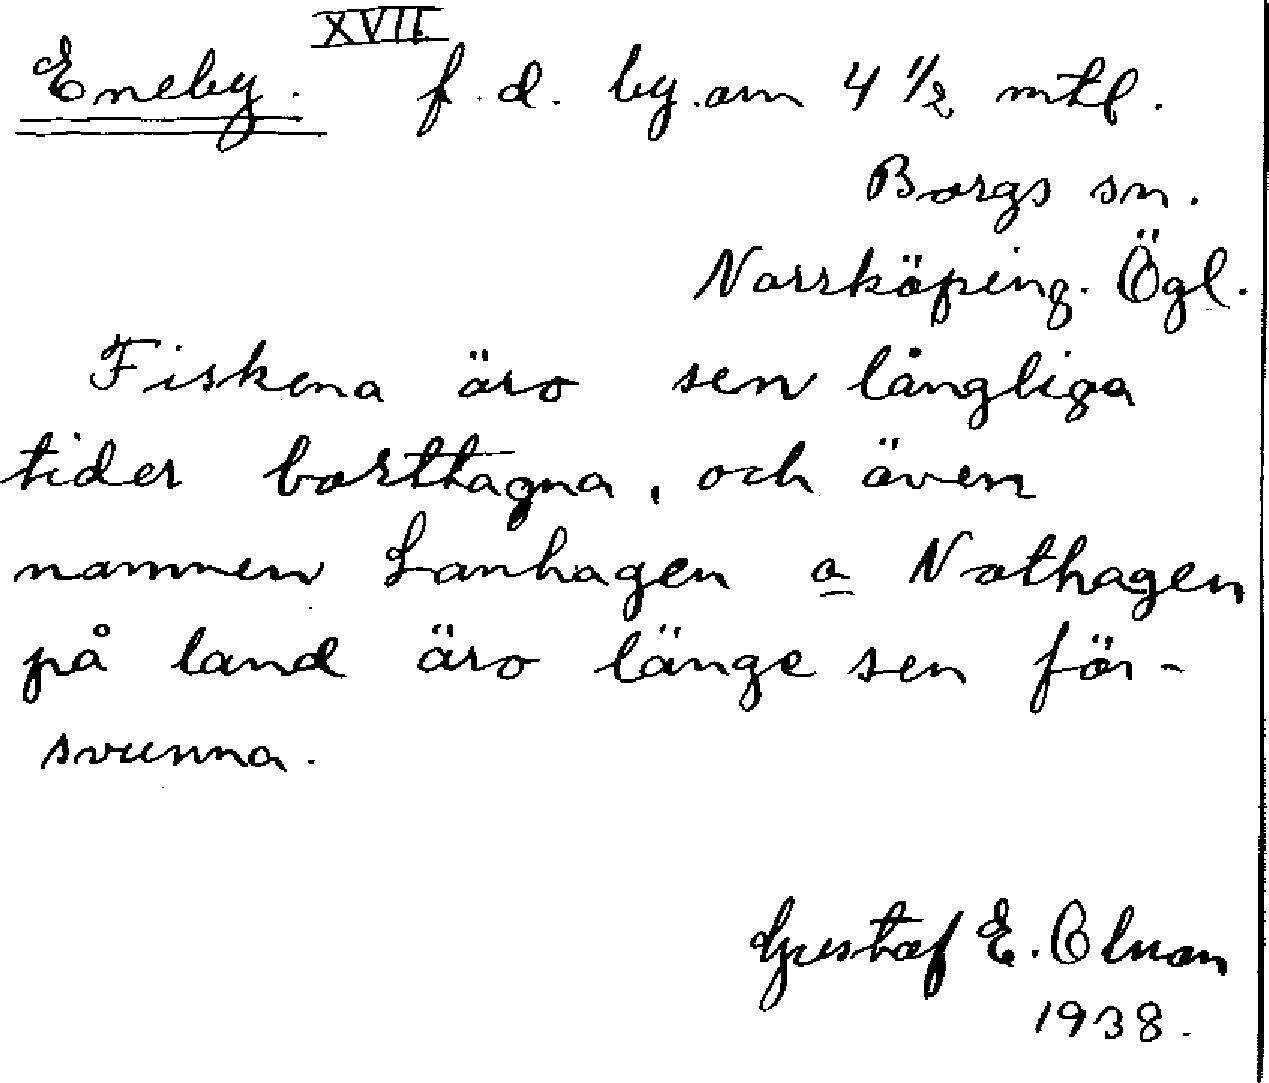 XVII
Eneby. f. d. by om 4 1/2 mtl.
Borgs sn.
Norrköping. Ögl.
Fiskena äro sen långliga
tider borttagna, och även
namnen Lanhagen o Nothagen
på land äro länge sen för-
svunna.
Gustaf E. Olson
1938.